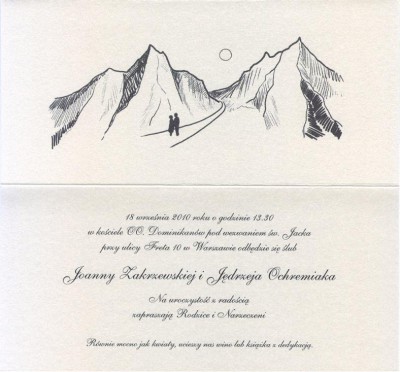 18 września 2010 roku o godzinie 13.30
w kościele OO. Dominikanów pod wezwaniem św. Jacka
przy ulicy Freta 10 w Warszawie odbędzie się ślub
Joanny Zakrzewskiej i Jędrzeja Ochremiaka
Na uroczystość z radością
zapraszają Rodzice i Narzeczeni.
Równie mocno jak kwiaty, ucieszy nas wino lub książka z dedykacją.